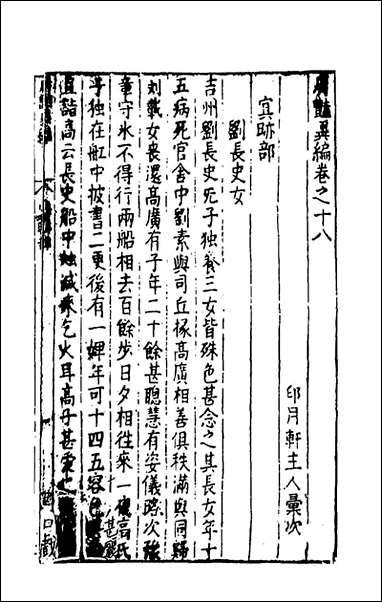 廣豔異編卷之十八
印月軒主人彙次
冥跡部
劉長史女
吉州劉長史死子独養三女皆殊色甚念之其長女年十
五病死官舍中劉素與司丘掾高廣相善俱秩滿與同歸
刘載女喪還高廣有子年二十餘甚聰慧有姿儀路次
章守氷不得行兩船相去百餘步日夕相往來一夜高氏
子独在舡中披書二更後有一婢年可十四五容
直詣高云長史船中燭滅來乞火耳高子甚愛之